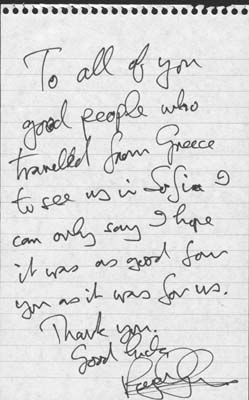 To all of you
good people who
travelled from Greece
to see us in Sofia I
can only say I hope
it was as good for
you as it was for us.
Thank you.
Good luck